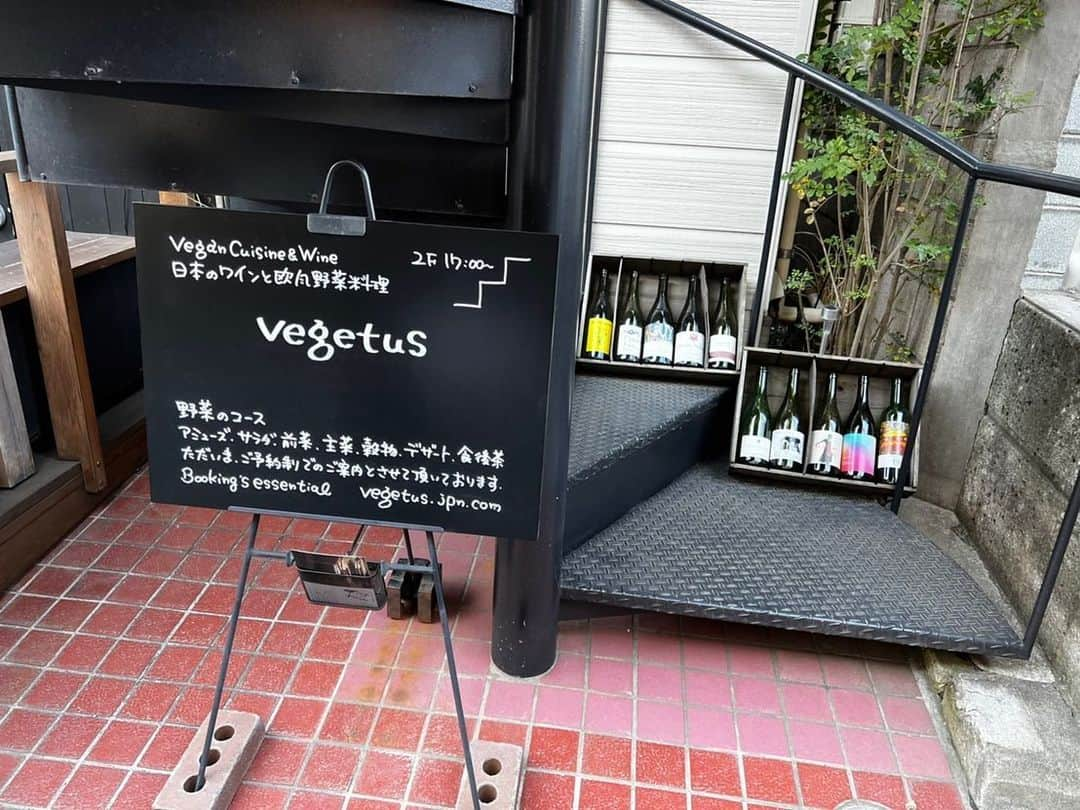 Vegan Cuisine & Wine
2F 17:00~
日本のワインと欧風野菜料理
vegetus
野菜のコース
アミューズ、サラダ、前菜、主菜、穀物、デザート、食後茶
ただいま、ご予約制でのご案内とさせて頂いております.
Booking's essential vegetus.jpn.com